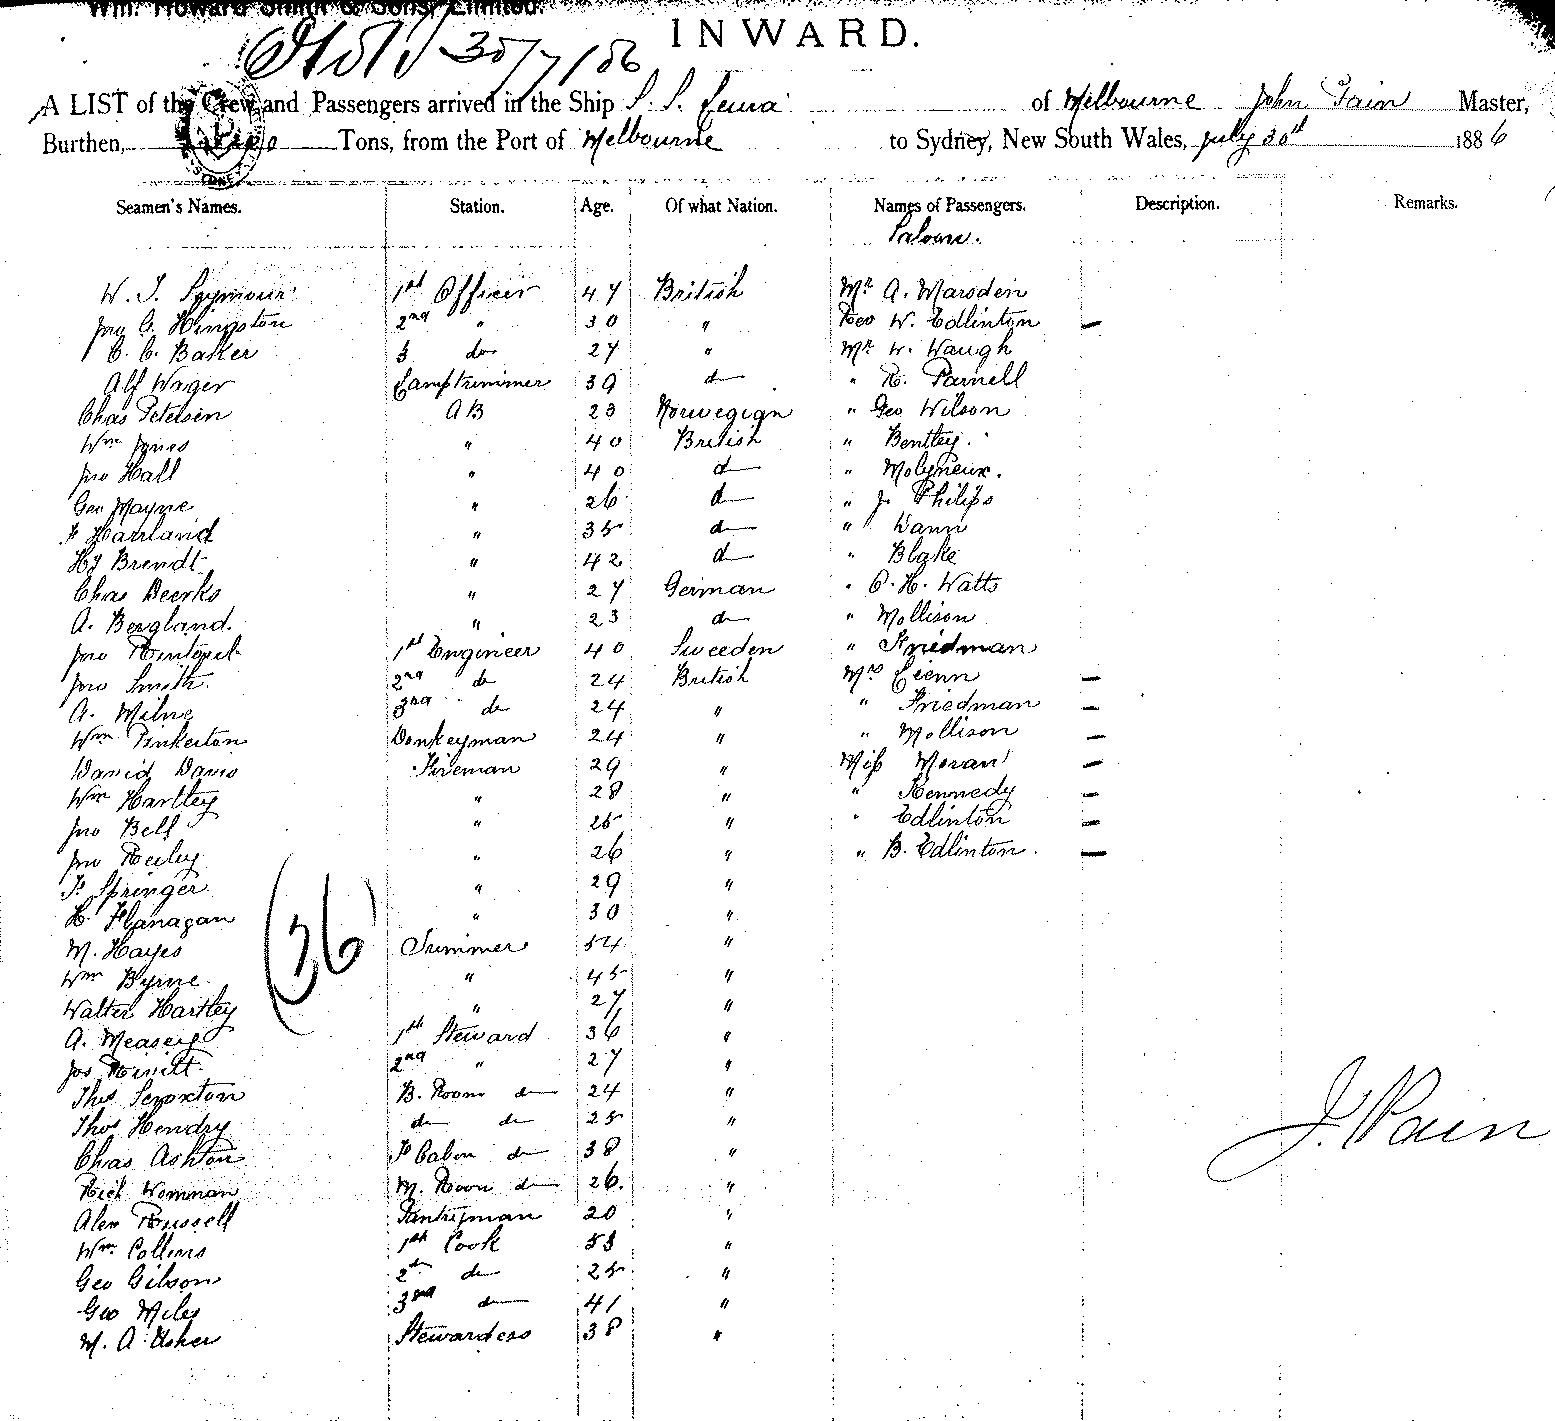 Wm. Howard Smith & Sons, Limited.
30/7/86
INWARD.
A LIST of the Crew and Passengers arrived in the Ship S. S. of Melbourne John Pain Master,
Burthen, Tons, from the Port of Melbourne to Sydney, New South Wales, July 30th 1886
Seamen's Names. Station. Age. Of what Nation. Names of Passengers. Description. Remarks.
Saloon.
W. J. Seymour 1st Officer 47 British Mr A. Marsden
Jno C. Kingston 2nd " 30 " Rev W. Edlinton —
C. C. Baker 3 do 27 " Mr W. Waugh
Alf Wager Lamptrimmer 39 do " R. Parnell
Chas Petersen AB 23 Norwegian " Geo Wilson
Wm Jones " 40 British " Bentley.
Jno Hall " 40 do " Molyneux.
Geo Mayne " 26 do " J. Philips
F Harrland 35 do " Dann
Hy Brendt " 42 do " Blake
Chas Beerks " 27 German " C. H. Watts
A. Bergland. " 23 do " Mollison
Jno Rintoul 1st Engineer 40 Sweeden " Friedman
Jno Smith. 2nd do 24 British Mrs —
A. Milne 3rd do 24 " " Friedman —
Wm Pinkerton Donkeyman 24 " " Mollison —
David Davis Fireman 29 " Miss Moran —
Wm Hartley " 28 " " Kennedy —
Jno Bell " 25 " " Edlinton —
Jno Reiley " 26 " " B. Edlinton. —
Springer " 29 "
H. Flanagan " 30 "
M. Hayes Trimmer 54 "
Wm Byrne " 45 "
Walter Hartley " 27 "
(36)
A. Measey 1st Steward 36 "
Jos Rivitt 2nd " 27 "
Thos Scroxton B. Room do 24 "
J. Pain
Thos Hendry do do 25 "
Chas Ashton F Cabin do 38 "
Rich Womnan M. Room do 26. "
Alex Russell Pantryman 20 "
Wm Collins 1st Cook 53 "
Geo Gilson 2nd do 25 "
Geo Miles 3rd do 41 "
M. A. Usher Stewardess 38 "